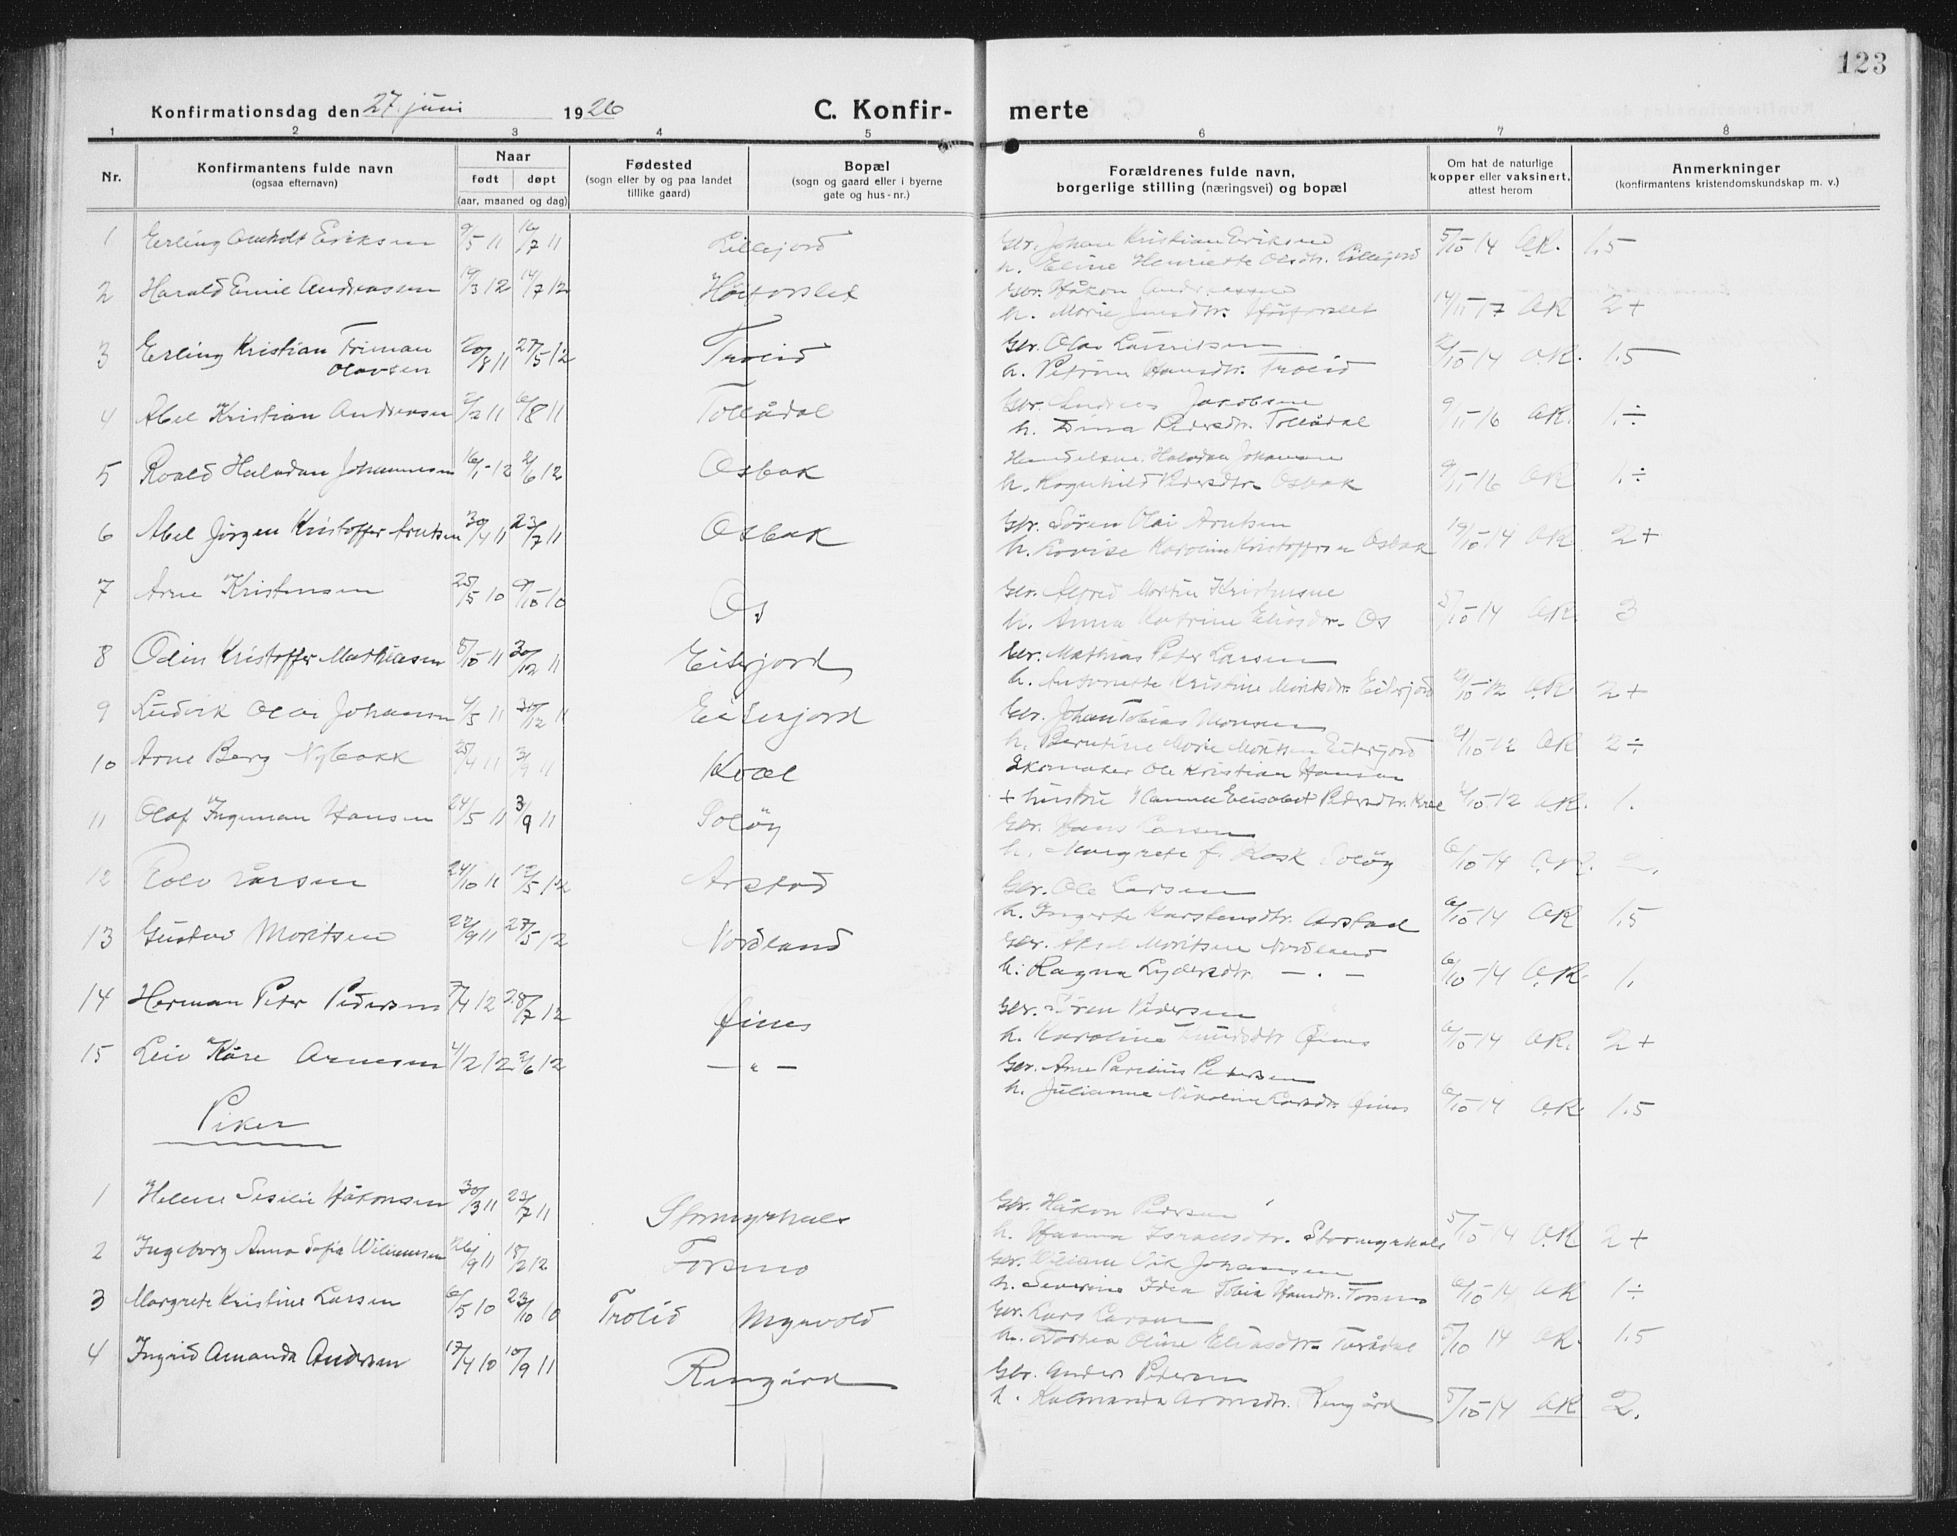 123
Konfirmationsdag den 27. juni 1926
C. Konfir- merte
1 2 3 4 5 6 7 8
Nr.
Konfirmantens fulde navn
(ogsaa efternavn)
Naar
født døpt
(aar, maaned og dag)
Fødested
(sogn eller by og paa landet
tillike gaard)
Bopæl
(sogn og gaard eller i byerne
gate og hus-nr.)
Forældrenes fulde navn,
borgerlige stilling (næringsvei) og bopæl
Om hat de naturlige
kopper eller vaksinert,
attest herom
Anmerkninger
(konfirmantens kristendomskundskap m. v.)
1 Erling Eriksen 9/5 11 16/7 11 Lillejord Gbr. Johan Kristian Eriksen 5/10-14 O.K. 1.5
h. Eline Henriette Olsdtr. Lillejord
2 Harald Emil Andreassen 14/7 12 Gbr. Håkon Andreassen
h. Marie Jensdtr. 14/11-17 OK 2+
3 Erling Kristian Friman 20/8 11 27/5 12 Troeid Gbr. Olav Lauritsen
Olavsen h. Petrine Hansdtr. Troeid 10-14 O.K. 1.5
4 Abel Kristian Andreasen 2/2 11 6/8 11 Tollådal Gbr. Andreas Jakobsen
h. Dina Pedersdtr. Tollådal 9/11-16 O.K. 1.÷
5 Roald Halvdan Johannesen 16/1-12 2/6 12 Osbak Halvdan Johansen
h. Ragnhild Pedersdtr. Osbak 9/11-16 OK 1.÷
6 Abel Jörgen Kristoffer Arntsen 30/4 11 23/7 11 Osbak Gbr. Sören Olai Arntsen
h. Lovise Karoline Kristoffersen Osbak 19/10-14 OK 2+
7 Arne Kristensen 25/5 10 9/10 10 Os Gbr. Alfred Martin Kristensen
h. Anna Katrine Eliasdtr. Os 5/10-14 OK 3
8 Odin Kristoffer Mathiasen 8/10 11 30/12 11 Eiterjord Gbr. Mathias Peter Larsen
h. Antonette Kristine Moritsdtr. Eiterjord 10-12 O.K 2+
9 Ludvik Olai Johansen 4/5 11 30/12 11 Eiterjord Gbr. Johan Tobias Monsen
h. Berntine Marie Moritsen Eiterjord 10-12 OK 2÷
10 Arne Berg Nybakk 25/4 11 3/9 11 Kvæl Skomaker Ole Kristian Hansen
+ hustru Hanna Elisabet Pedersdtr. Kvæl 10-12 O.K. 1.
11 Olaf Ingeman Hansen 24/5 11 3/9 11 Soløy Gbr. Hans Larsen
h. Margrete f. Rask Soløy 6/10-14 O.K. 2.
12 Larsen 24/10 11 12/5 12 Arstad Gbr. Ole Larsen
h. Ingerte Karstensdtr. Arstad 6/10-14 O.K 1.5
13 Gustav Moritsen 22/9 11 27/5 12 Nordland Gbr. Aksel Moritsen Nordland
h. Ragna Lydersdtr. — . — 6/10-14 O.K. 1.
14 Herman Peter Pedersen 7/4 12 28/7 12 Øines Gbr. Sören Pedersen
h. Karoline Knudsdtr. Øines 6/10-14 O.K. 2+
15 Leiv Kåre Arnesen 4/2 12 2/6 12 — " — Gbr. Arne Parelius Petersen
h. Julianne Nikoline Larsdtr. Øines 6/10-14 O.K. 1.5
Piker
1 Helene Sesilie Håkonsen 30/3 11 23/7 11 Stormyrhals Gbr. Håkon Pedersen
h. Hanna Isaksdtr. Stormyrhals 5/10-14 O.K 2+
2 Ingeborg Anna Sofie Wiliamsen 26/9 11 18/2 12 Forsmo Gbr. Wiliam Vik Johansen
h. Severine Hansdtr. Forsmo 6/10-14 OK 1÷
3 Margrete Kristine Larsen 6/5 10 23/10 10 Trolid Myrvold Gbr. Lars Larsen
h. Dorthea Oline Eliasdtr. 5/10 14 O.K. 1.5
4 Ingrid Amanda Andersen 17/4 10 10/9 11 Rengård Gbr. Anders Pedersen
h. Rengård 5/10-14 OK 2.